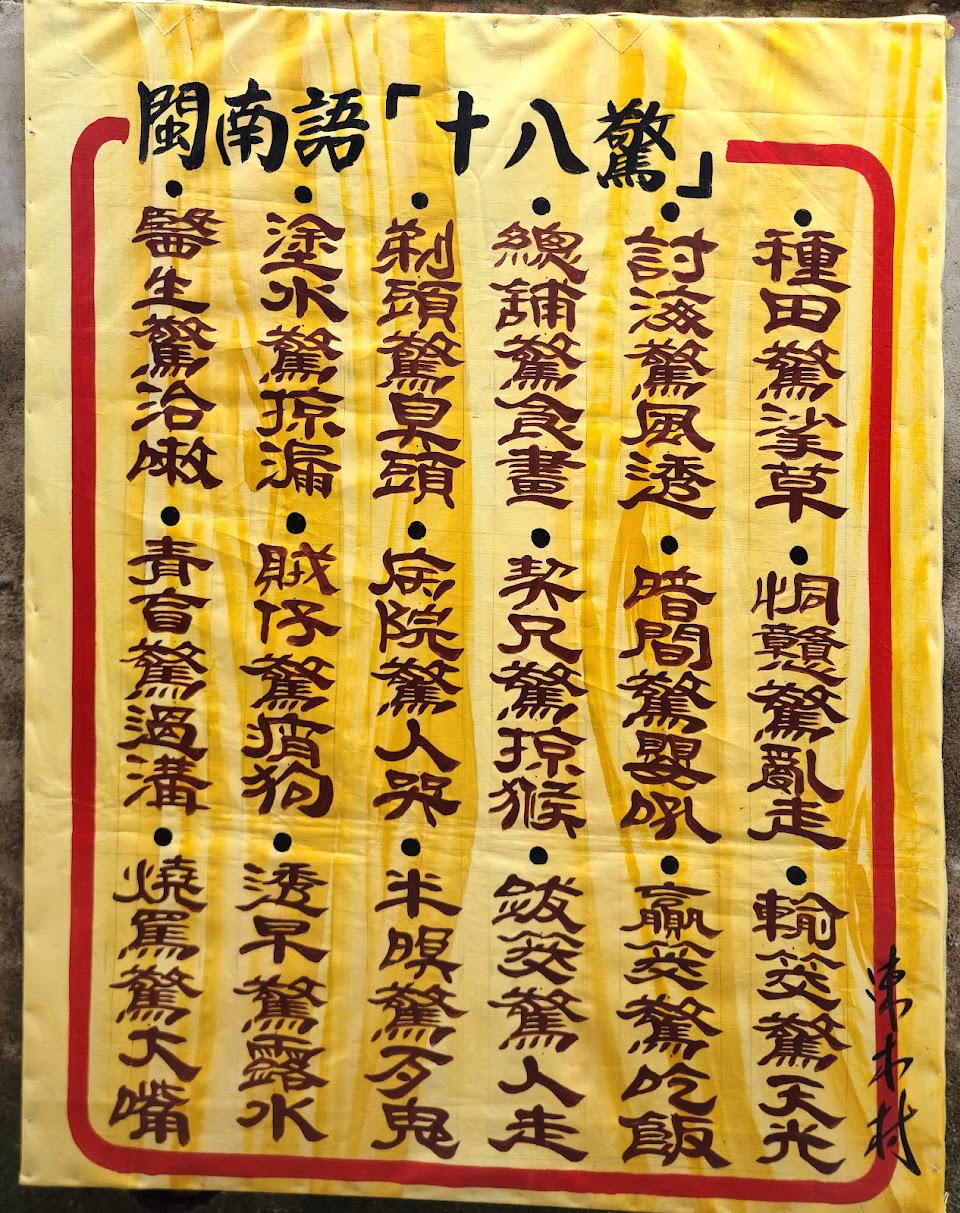 閩南語「十八驚」
•種田驚挲草•恫戇驚亂走•輸筊驚天光
•討海驚風透•暗間驚嬰吼•贏筊驚吃飯
•總舖驚食晝•契兄驚掠猴•跋筊驚人走
•剃頭驚臭頭•病院驚人哭•半暝驚歹鬼
•塗水驚掠漏•賊仔驚痟狗•透早驚露水
•醫生驚治嗽•青盲驚過溝•燒罵驚大嘴
木村